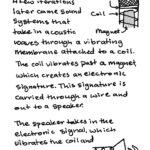 A few iterations
later came sound
Systems that
take in acoustic
waves through a vibrating
membrane attached to a coil.
Coil
Magnet
The coil vibrates past a magnet
which creates an electronic
signature. This signature is
carried through a wire and
out to a speaker
The speaker takes in the
electronic signal, which
vibrates the coil and